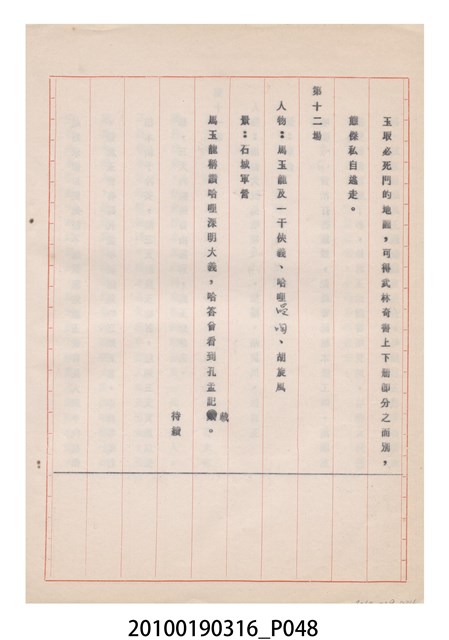 玉取必死門的地圖，可得武林奇書上下冊部分之面別，
態傑私自逃走。
第十二場
人物：馬玉龍及一干俠義、哈哩、胡旋風
景：石城軍營
馬玉龍稱讚哈哩深明大義，哈答曾看到孔孟記載。
待續
20100190316_P048